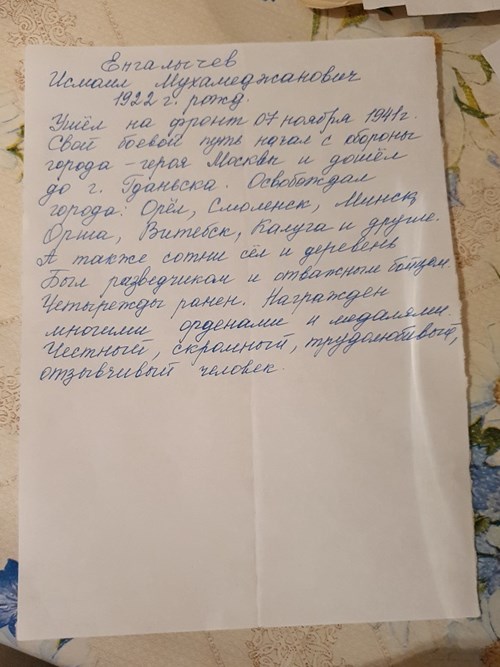 Енгалычев
Исмаил Мухамеджанович
1922 г. рожд.
Ушёл на фронт 07 ноября 1941г.
Свой боевой путь начал с обороны
города - героя Москвы и дошёл
до г. Гданьска. Освобождал
города: Орёл, Смоленск, Минск,
Орша, Витебск, Калуга и другие.
А также сотни сёл и деревень
Был разведчикам и отважным бойцем.
Четырежды ранен. Награждён
многими орденами и медалями.
Честный, скромный, трудолюбивый,
отзывчивый человек.